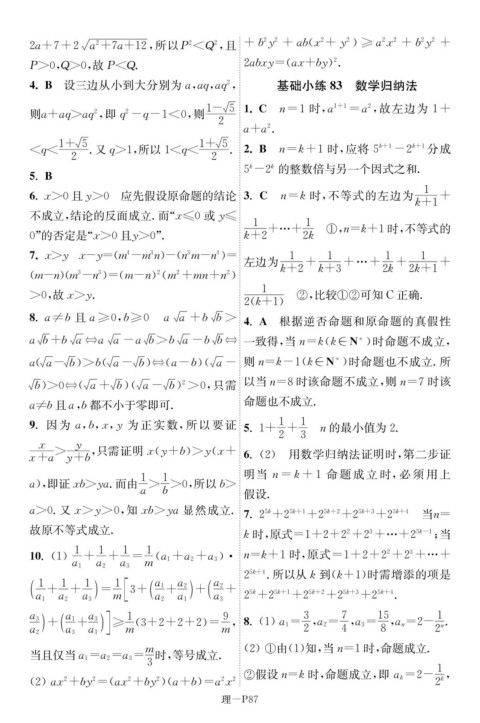 2a+7+2√(a²+7a+12),所以P²<Q²,且
P>0,Q>0,故 P<Q.
4. B 设三边从小到大分别为 a,aq,aq²,
则a+aq>aq²,即 q²-q-1<0,则 (1-√5)/2
<q<(1+√5)/2. 又 q>1,所以 1<q<(1+√5)/2.
5. B
6. x>0 且 y>0 应先假设原命题的结论
不成立,结论的反面成立. 而“x≤0 或 y≤
0”的否定是“x>0 且y>0”.
7. x>y x-y=(m⁴-m³n)-(n³m-n⁴)=
(m-n)(m³-n³)=(m-n)²(m²+mn+n²)
>0,故 x>y.
8. a≠b 且 a≥0,b≥0 a√a+b√b>
a√b+b√a⇔a√a-a√b>b√a-b√b⇔
a(√a-√b)>b(√a-√b)⇔(a-b)(√a-
√b)>0⇔(√a+√b)(√a-√b)²>0,只需
a≠b 且 a,b 都不小于零即可.
9. 因为 a,b,x,y 为正实数,所以要证
x/(x+a)>y/(y+b),只需证明 x(y+b)>y(x+
a),即证 xb>ya. 而由 1/a>1/b>0,所以 b>
a>0. 又 x>y>0,知 xb>ya 显然成立.
故原不等式成立.
10. (1) 1/a₁+1/a₂+1/a₃=1/m(a₁+a₂+a₃)·
(1/a₁+1/a₂+1/a₃)=1/m[3+(a₁/a₂+a₂/a₁)+(a₂/a₃+
a₃/a₂)+(a₁/a₃+a₃/a₁)]≥1/m(3+2+2+2)=9/m,
当且仅当 a₁=a₂=a₃=m/3时,等号成立.
(2) ax²+by²=(ax²+by²)(a+b)=a²x²
+b²y²+ab(x²+y²)≥a²x²+b²y²+
2abxy=(ax+by)².
基础小练 83 数学归纳法
1. C n=1 时,a¹⁺¹=a²,故左边为 1+
a+a².
2. B n=k+1 时,应将 5ᵏ⁺¹-2ᵏ⁺¹ 分成
5ᵏ-2ᵏ 的整数倍与另一个因式之和.
3. C n=k 时,不等式的左边为 1/(k+1)+
1/(k+2)+…+1/2k ①,n=k+1时,不等式的
左边为 1/(k+2)+1/(k+3)+…+1/2k+1/(2k+1)+
1/(2(k+1)) ②,比较①②可知 C 正确.
4. A 根据逆否命题和原命题的真假性
一致得,当 n=k(k∈N*)时命题不成立,
则 n=k-1(k∈N*)时命题也不成立. 所
以当 n=8 时该命题不成立,则 n=7 时该
命题也不成立.
5. 1+1/2+1/3 n 的最小值为 2.
6. (2) 用数学归纳法证明时,第二步证
明当 n=k+1 命题成立时,必须用上
假设.
7. 2⁵ᵏ+2⁵ᵏ⁺¹+2⁵ᵏ⁺²+2⁵ᵏ⁺³+2⁵ᵏ⁺⁴ 当n=
k 时,原式=1+2+2²+2³+…+2⁵ᵏ⁻¹;当
n=k+1 时,原式=1+2+2²+2³+…+
2⁵ᵏ⁺⁴. 所以从 k 到(k+1)时需增添的项是
2⁵ᵏ+2⁵ᵏ⁺¹+2⁵ᵏ⁺²+2⁵ᵏ⁺³+2⁵ᵏ⁺⁴.
8. (1) a₁=3/2,a₂=7/4,a₃=15/8,aₙ=2-1/2ⁿ.
(2) ①由(1)知,当 n=1 时,命题成立.
②假设 n=k 时,命题成立,即 aₖ=2-1/2ᵏ,
理－P87